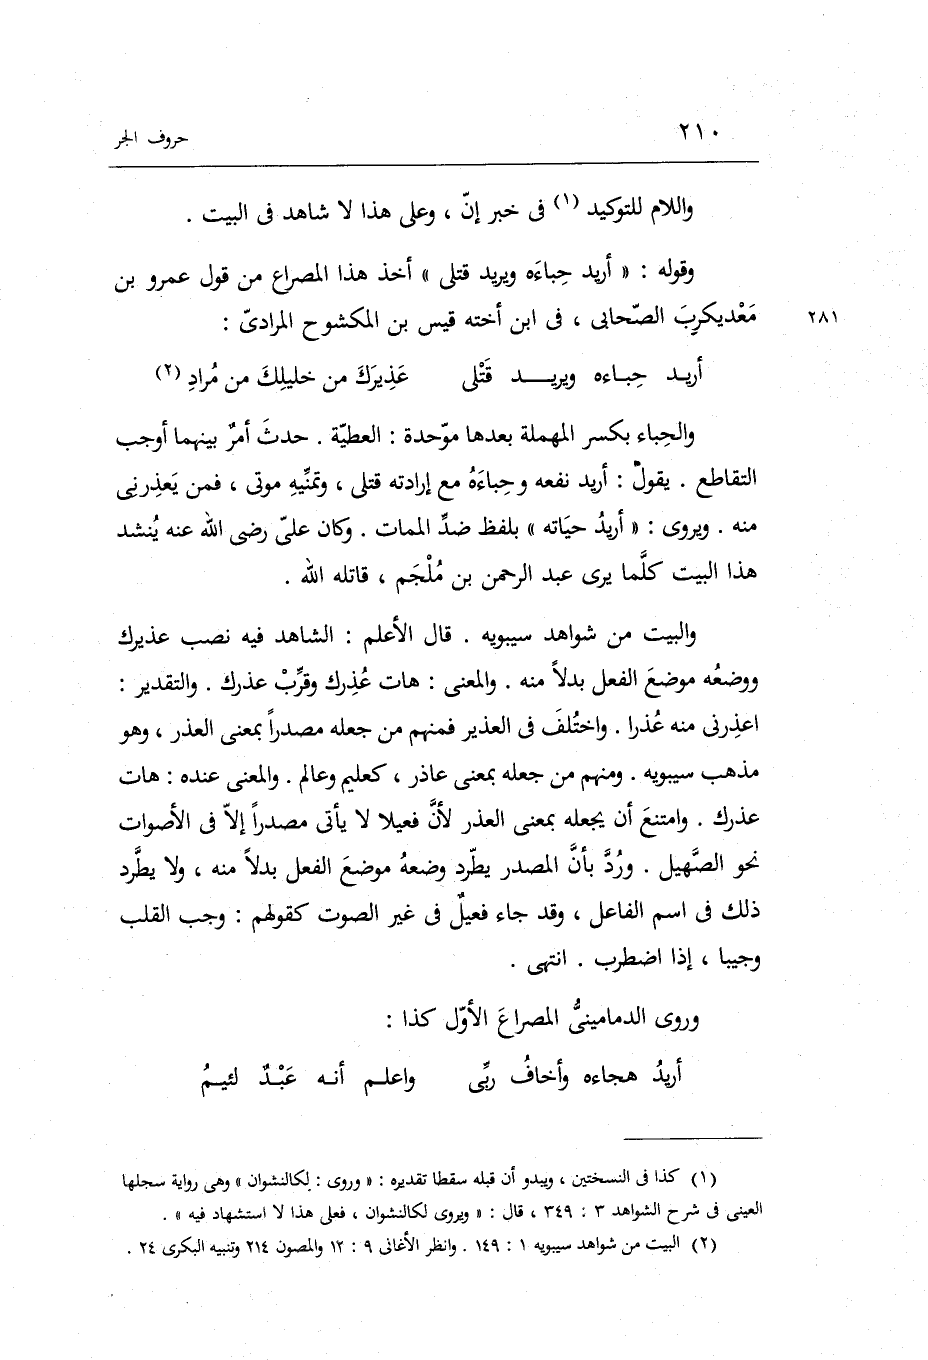 ٢١٠ حروف الجر
واللام للتوكيد (١) فى خبر إنّ ، وعلى هذا لا شاهد فى البيت .
وقوله : « أريد حِباءَه ويريد قتلى » أخذ هذا المصراع من قول عمرو بن
مَعْديكربَ الصّحابى ، فى ابن أخته قيس بن المكشوح المرادىّ : ٢٨١
أريـد حِبـاءه ويريـــد قَتْلى عَذِيرَكَ من خليلِكَ من مُرادِ (٢)
والحِباء بكسر المهملة بعدها موّحدة : العطيّة . حدثَ أمرٌ بينهما أوجب
التقاطع . يقولُ : أريد نفعه وحِباءَهُ مع إرادته قتلى ، وتمنِّيهِ موتى ، فمن يَعذرنِى
منه . ويروى : « أريدُ حيَاته » بلفظ ضدِّ الممات . وكان علىّ رضى الله عنه يُنشد
هذا البيت كلَّما يرى عبد الرحمن بن مُلْجَم ، قاتله الله .
والبيت من شواهد سيبويه . قال الأعلم : الشاهد فيه نصب عذيرك
ووضعُه موضعَ الفعل بدلاً منه . والمعنى : هات عُذِرك وقرِّبْ عذرك . والتقدير :
اعذِرنى منه عُذرا . واختُلفَ فى العذير فمنهم من جعله مصدراً بمعنى العذر ، وهو
مذهب سيبويه . ومنهم من جعله بمعنى عاذر ، كعليم وعالم . والمعنى عنده : هات
عذرك . وامتنعَ أن يجعله بمعنى العذر لأنَّ فعيلا لا يأتى مصدراً إلاّ فى الأصوات
نحو الصَّهيل . ورُدَّ بأنَّ المصدر يطّرد وضعهُ موضعَ الفعل بدلاً منه ، ولا يطَّرد
ذلك فى اسم الفاعل ، وقد جاء فعيلٌ فى غير الصوت كقولهم : وجب القلب
وجيبا ، إذا اضطرب . انتهى .
وروى الدمامينىُّ المصراعَ الأوّل كذا :
أريدُ هجاءه وأخافُ ربِّى واعلـم أنـه عَبْـدٌ لئيـمُ
(١) كذا فى النسختين ، ويبدو أن قبله سقطا تقديره : « وروى : لكالنشوان » وهى رواية سجلها
العينى فى شرح الشواهد ٣ : ٣٤٩ ، قال : « ويروى لكالنشوان ، فعلى هذا لا استشهاد فيه » .
(٢) البيت من شواهد سيبويه ١ : ١٤٩ . وانظر الأغانى ٩ : ١٢ والمصون ٢١٤ وتنبيه البكرى ٢٤ .